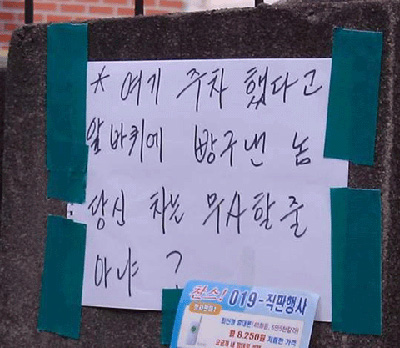 * 여기 주차 했다고
앞 바퀴에 빵구낸 놈
당신 차는 무사할 줄
아냐 ?
찬스! 019-직판행사
월 8,250원